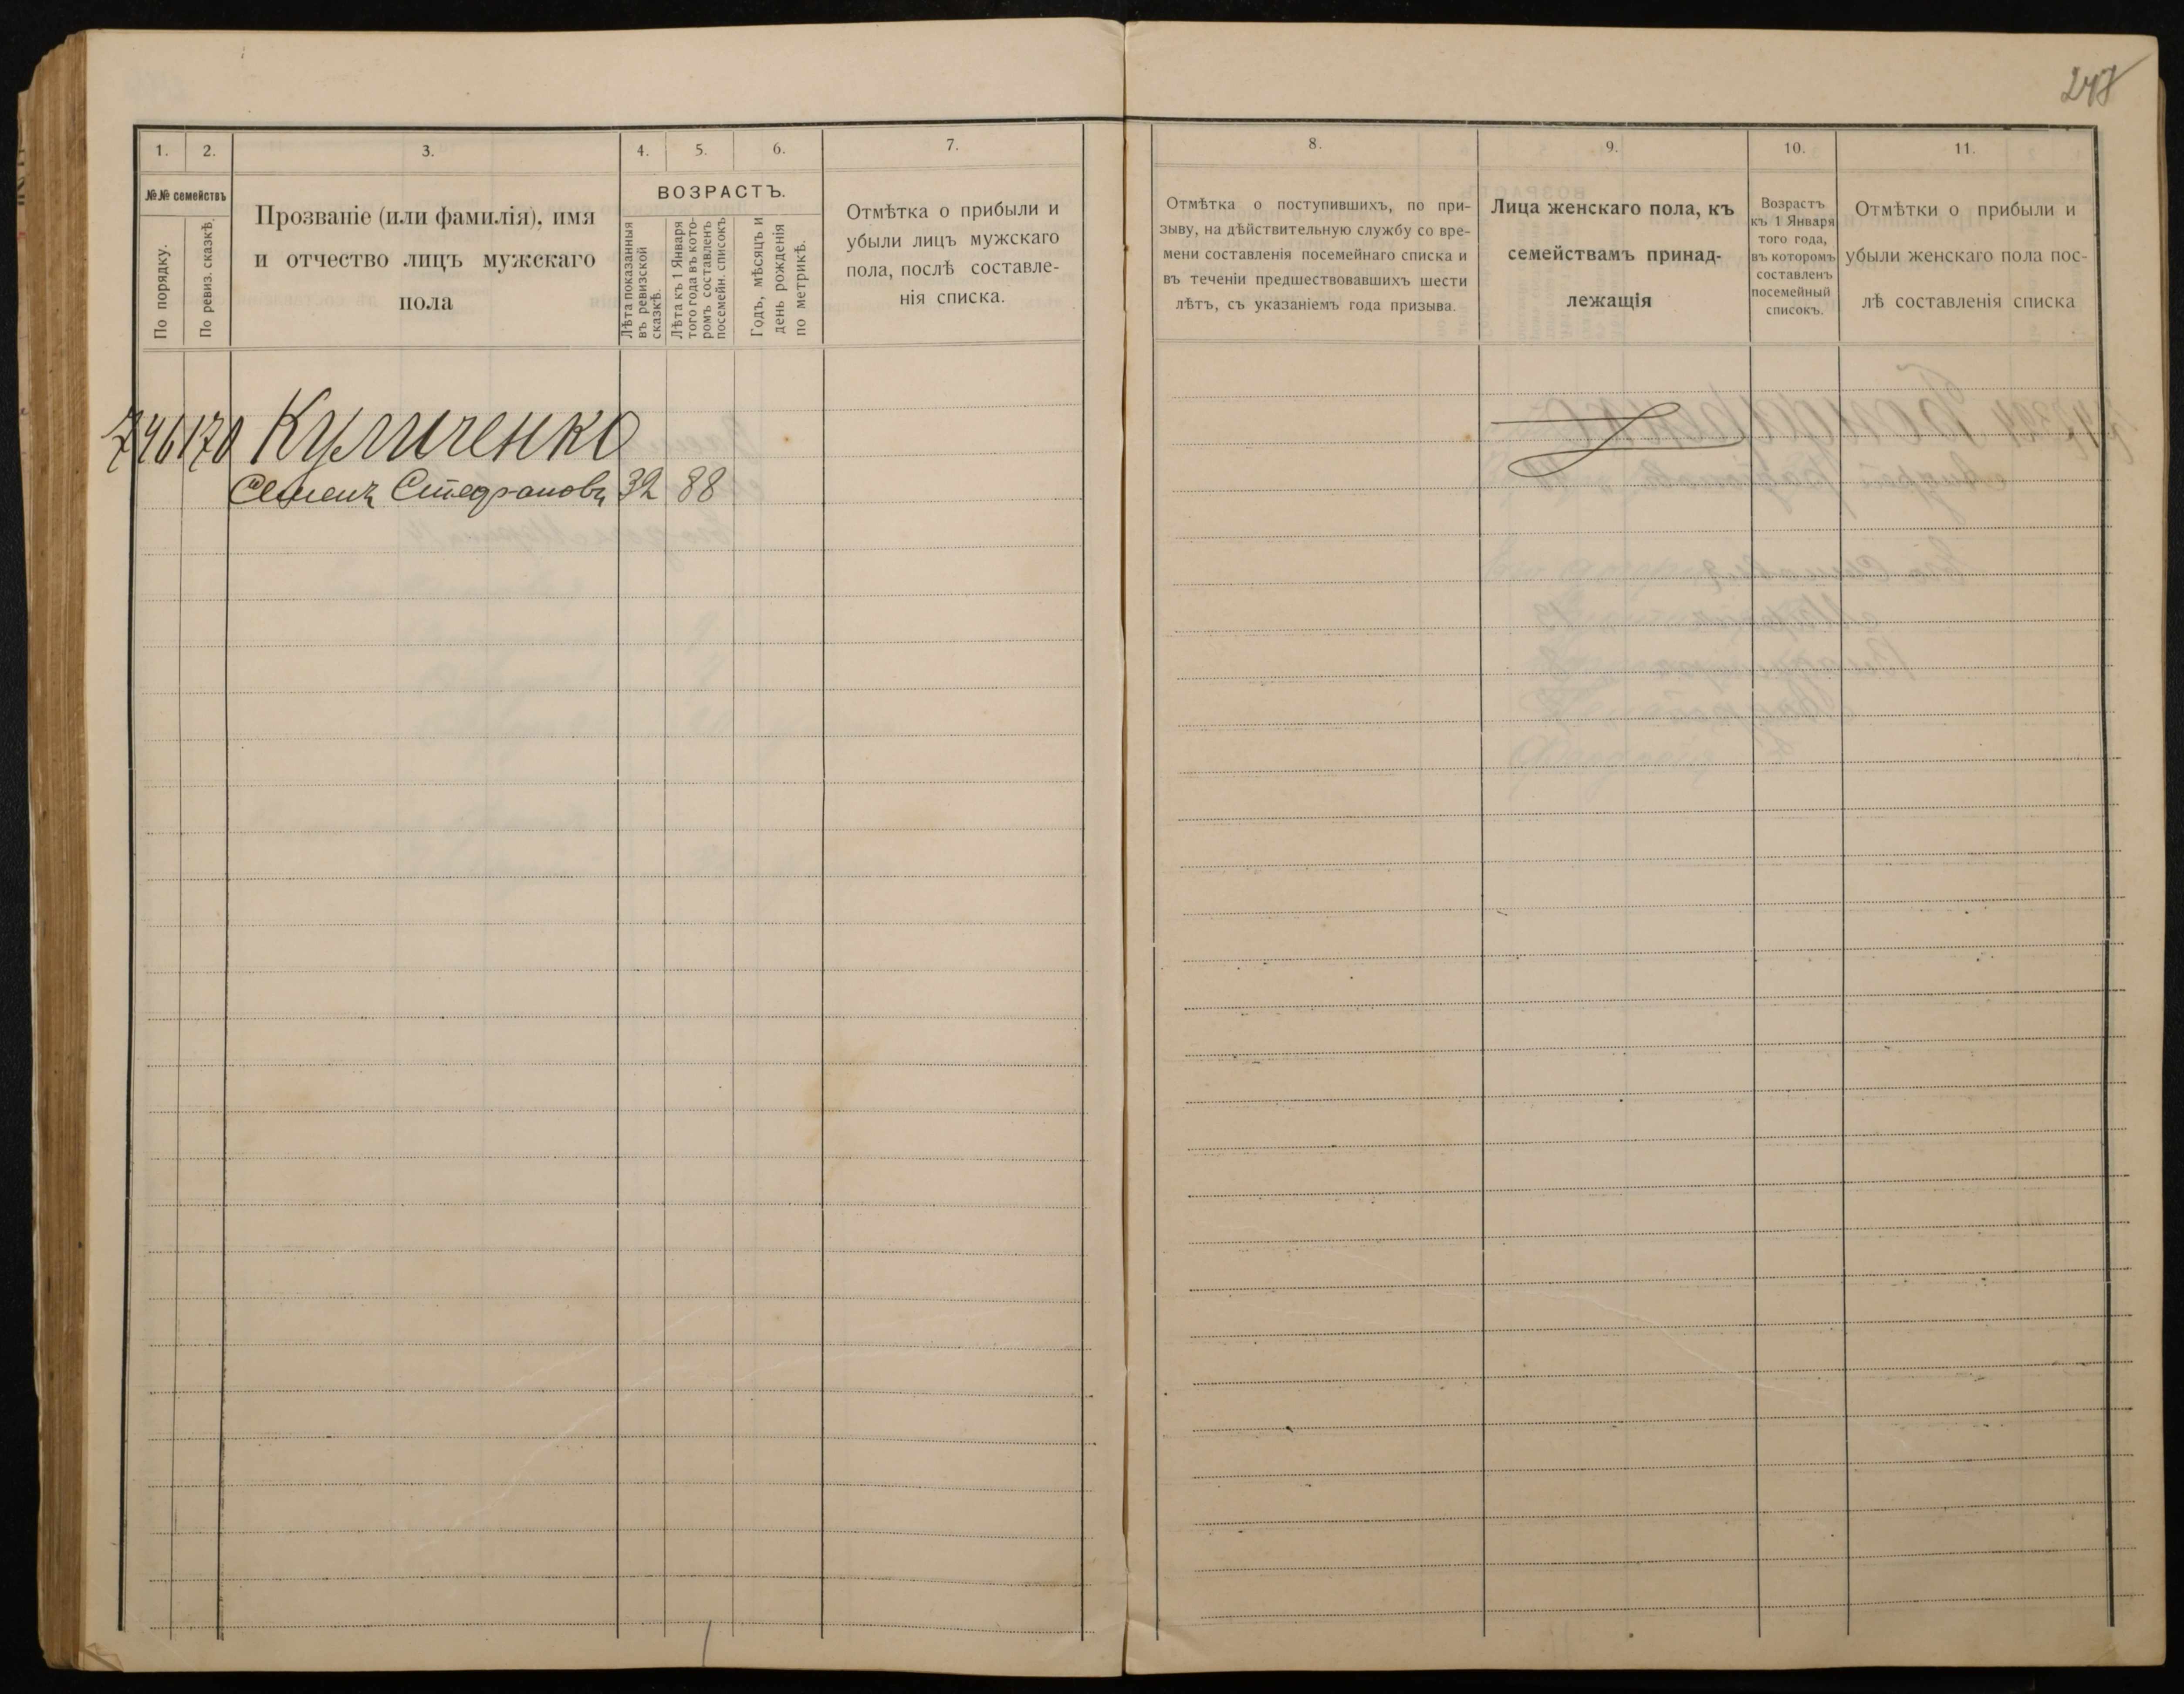 248
1. 2. 3. 4. 5. 6. 7.
№№ семействъ
По порядку.
По ревиз. сказкѣ.
Прозваніе (или фамилія), имя
и отчество лицъ мужскаго
пола
ВОЗРАСТЪ.
Лѣта показанныя
въ ревизской
сказкѣ.
Лѣта къ 1 Января
того года въ кото-
ромъ составленъ
посемейн. списокъ
Годъ, мѣсяцъ и
день рожденія
по метрикѣ.
Отмѣтка о прибыли и
убыли лицъ мужскаго
пола, послѣ составле-
нія списка.
746 170 Куличенко
Семенъ Стефановъ 32 88
8. 9. 10. 11.
Отмѣтка о поступившихъ, по при-
зыву, на дѣйствительную службу со вре-
мени составленія посемейнаго списка и
въ теченіи предшествовавшихъ шести
лѣтъ, съ указаніемъ года призыва.
Лица женскаго пола, къ
семействамъ принад-
лежащія
Возрастъ
къ 1 Января
того года,
въ которомъ
составленъ
посемейный
списокъ.
Отмѣтки о прибыли и
убыли женскаго пола пос-
лѣ составленія списка